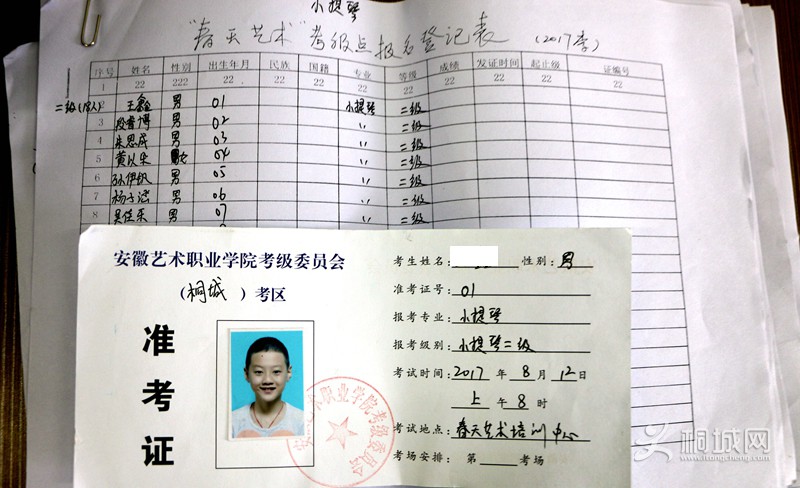 小提琴
"春天艺术"考级点报名登记表(2017季)
序号 姓名 性别 出生年月 民族 国籍 专业 等级 成绩 发证时间 起止级 证编号
1 22 222 22 22 22 22 22 22 22 22 22
二级 男 01 小提琴 二级
3 男 02 〃 二级
4 男 03 〃 二级
5 黄以 女 04 〃 二级
6 男 05 〃 二级
7 杨子 男 06 〃 二级
8 吴佳乐 男 07 〃 二级
安徽艺术职业学院考级委员会
(桐城)考区
准考证
考生姓名: 性别:男
准考证号:01
报考专业:小提琴
报考级别:小提琴二级
考试时间:2017年8月12日
上午8时
考试地点:春天艺术培训中心
考场安排:第 考场
桐城网
www.itongcheng.com